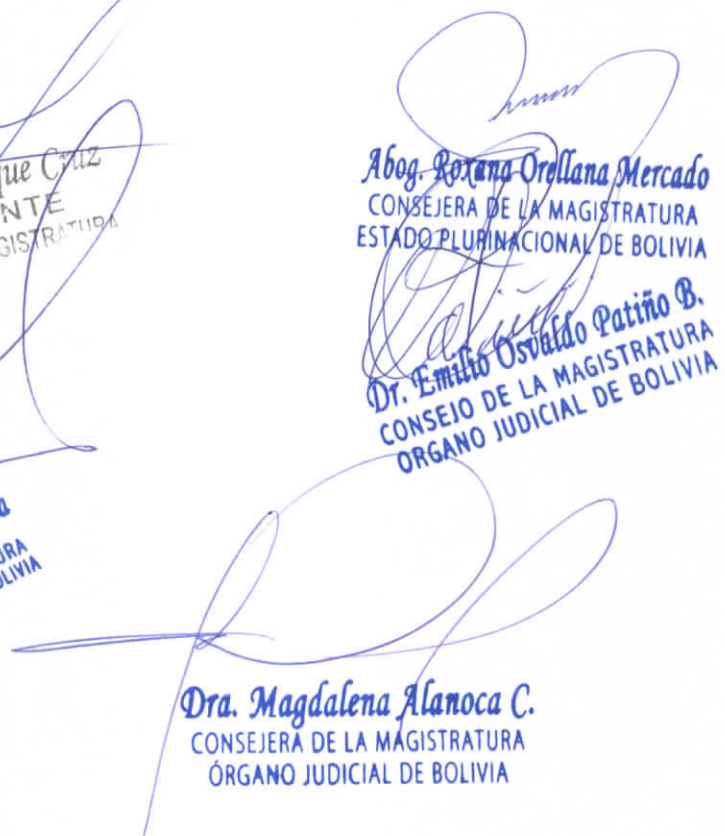 que Cruz
NTE
GISTRATURA
Abog. Roxana Orellana Mercado
CONSEJERA DE LA MAGISTRATURA
ESTADO PLURINACIONAL DE BOLIVIA
Patiño
Dr. Emilio Osvaldo Patiño B.
CONSEJO DE LA MAGISTRATURA
ORGANO JUDICIAL DE BOLIVIA
a
URA
OLIVIA
Dra. Magdalena Alanoca C.
CONSEJERA DE LA MAGISTRATURA
ÓRGANO JUDICIAL DE BOLIVIA